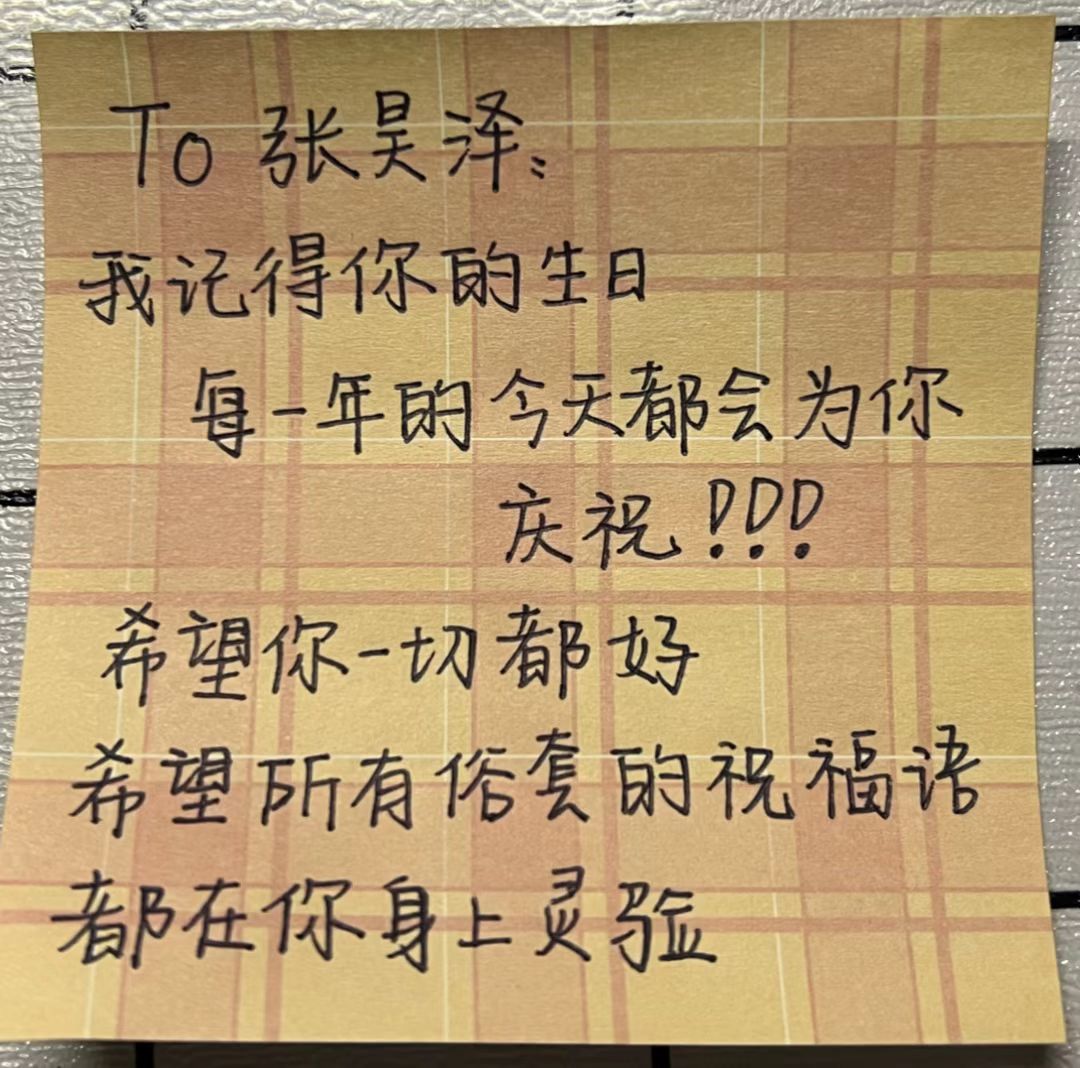 To 张昊泽:
我记得你的生日
每一年的今天都会为你
庆祝!!!
希望你一切都好
希望所有俗套的祝福语
都在你身上灵验